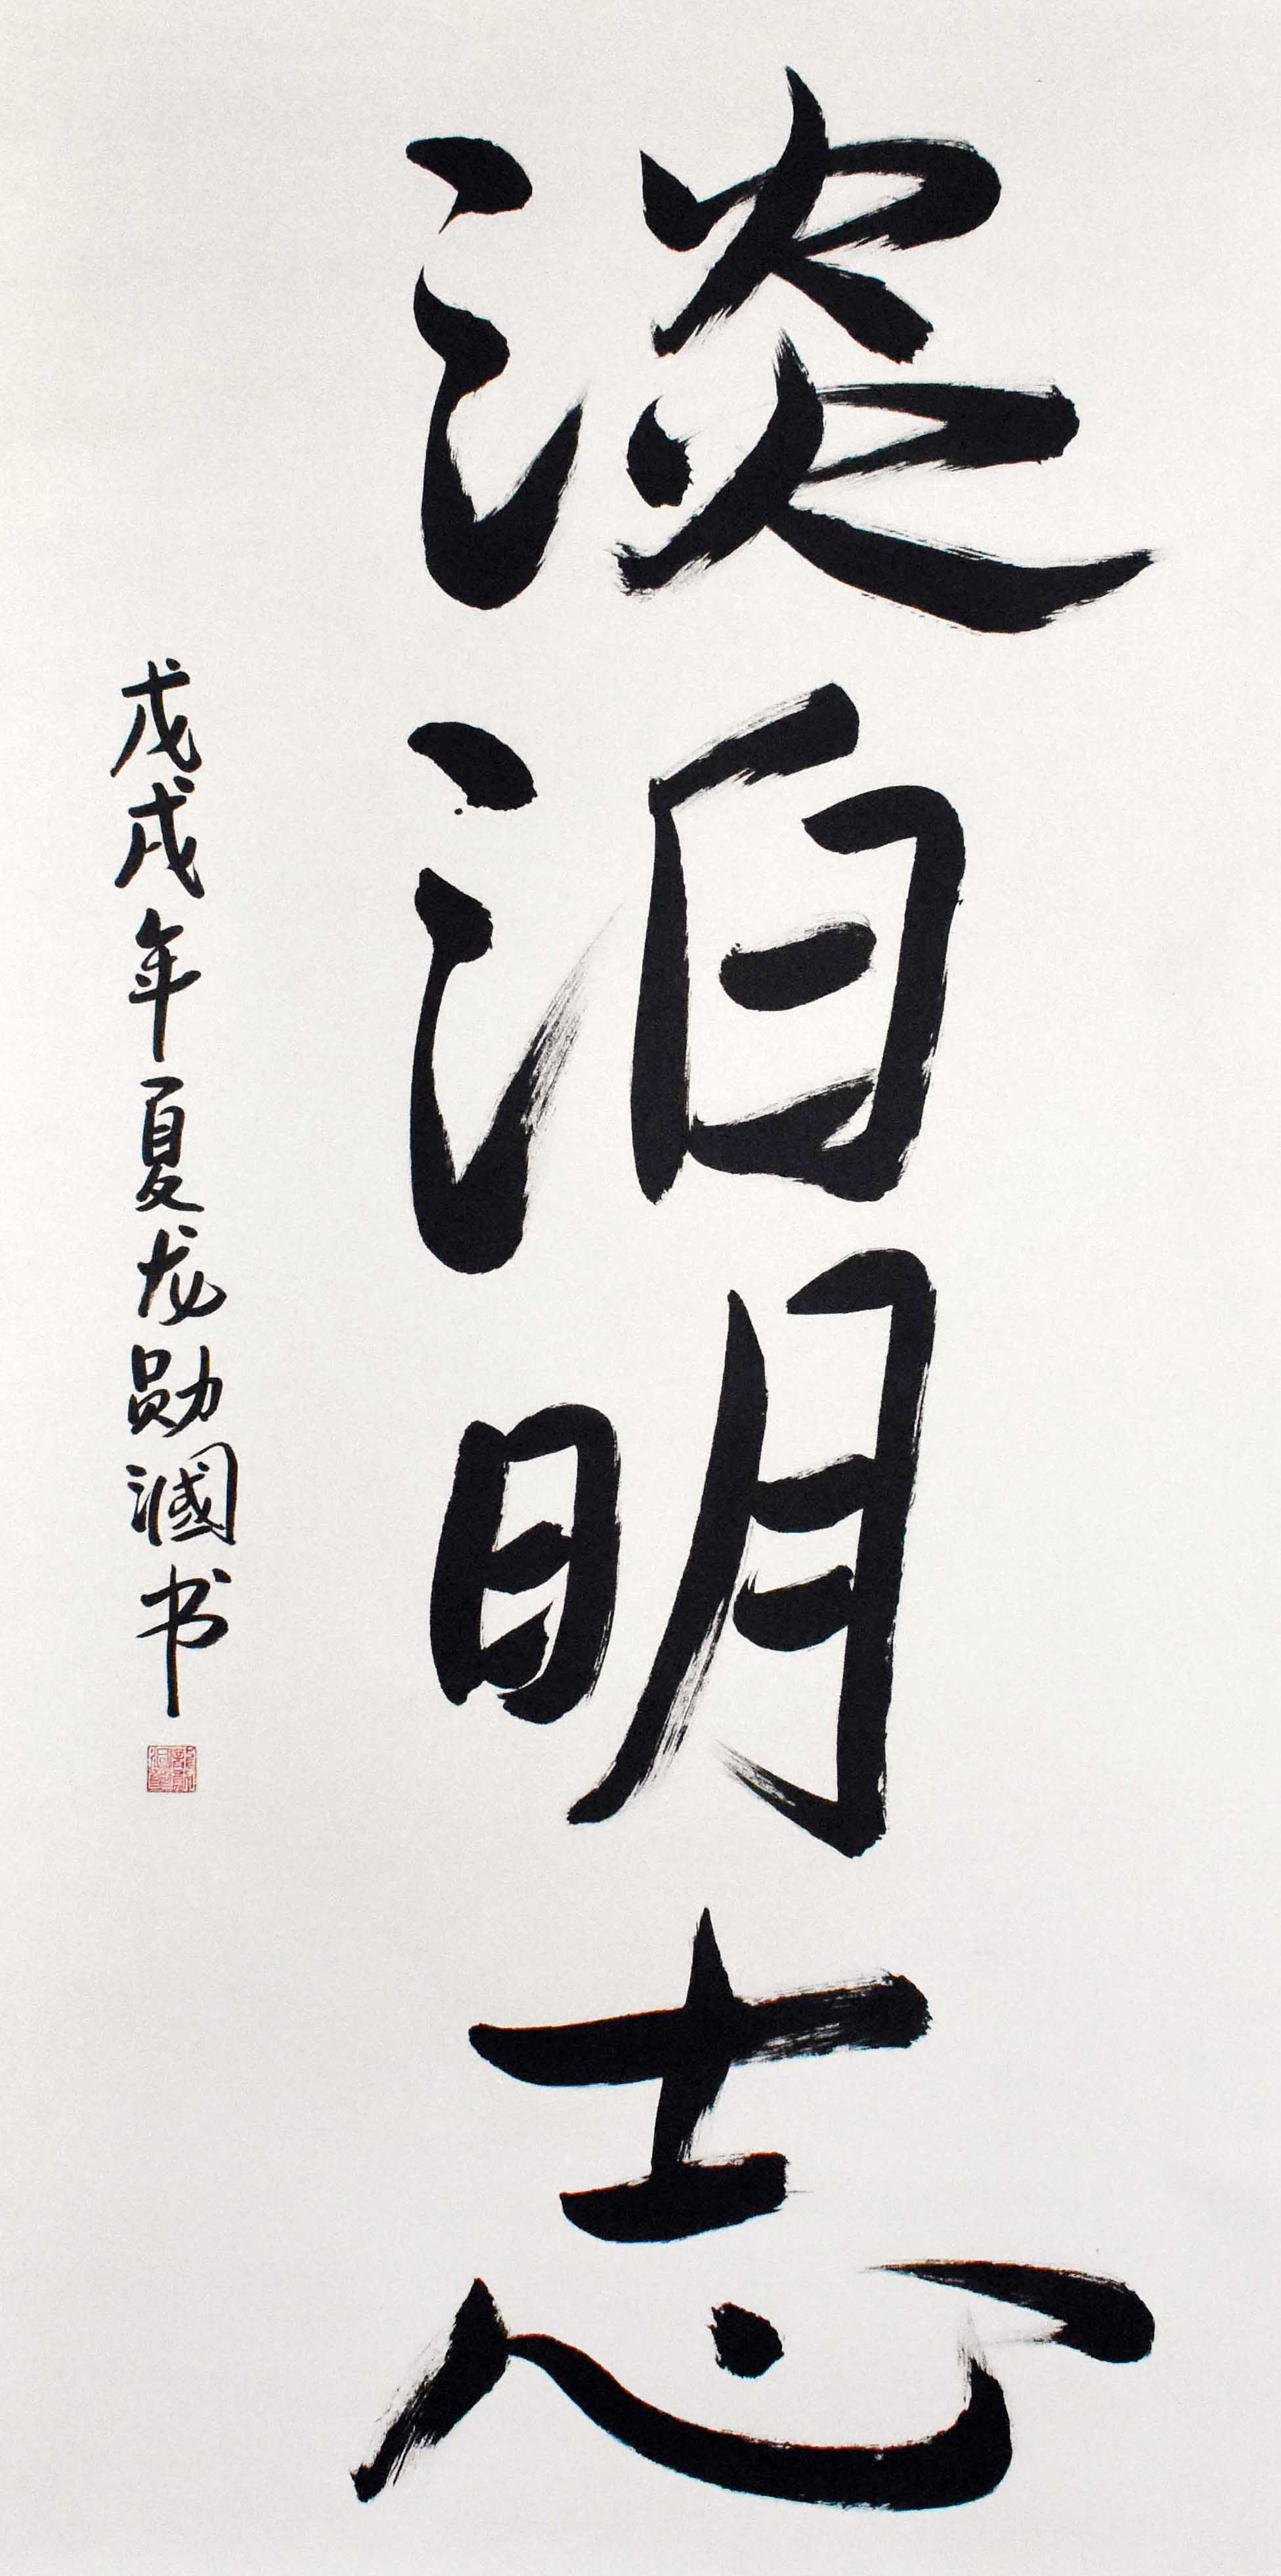 淡泊明志
戊戌年夏龙勋漍书